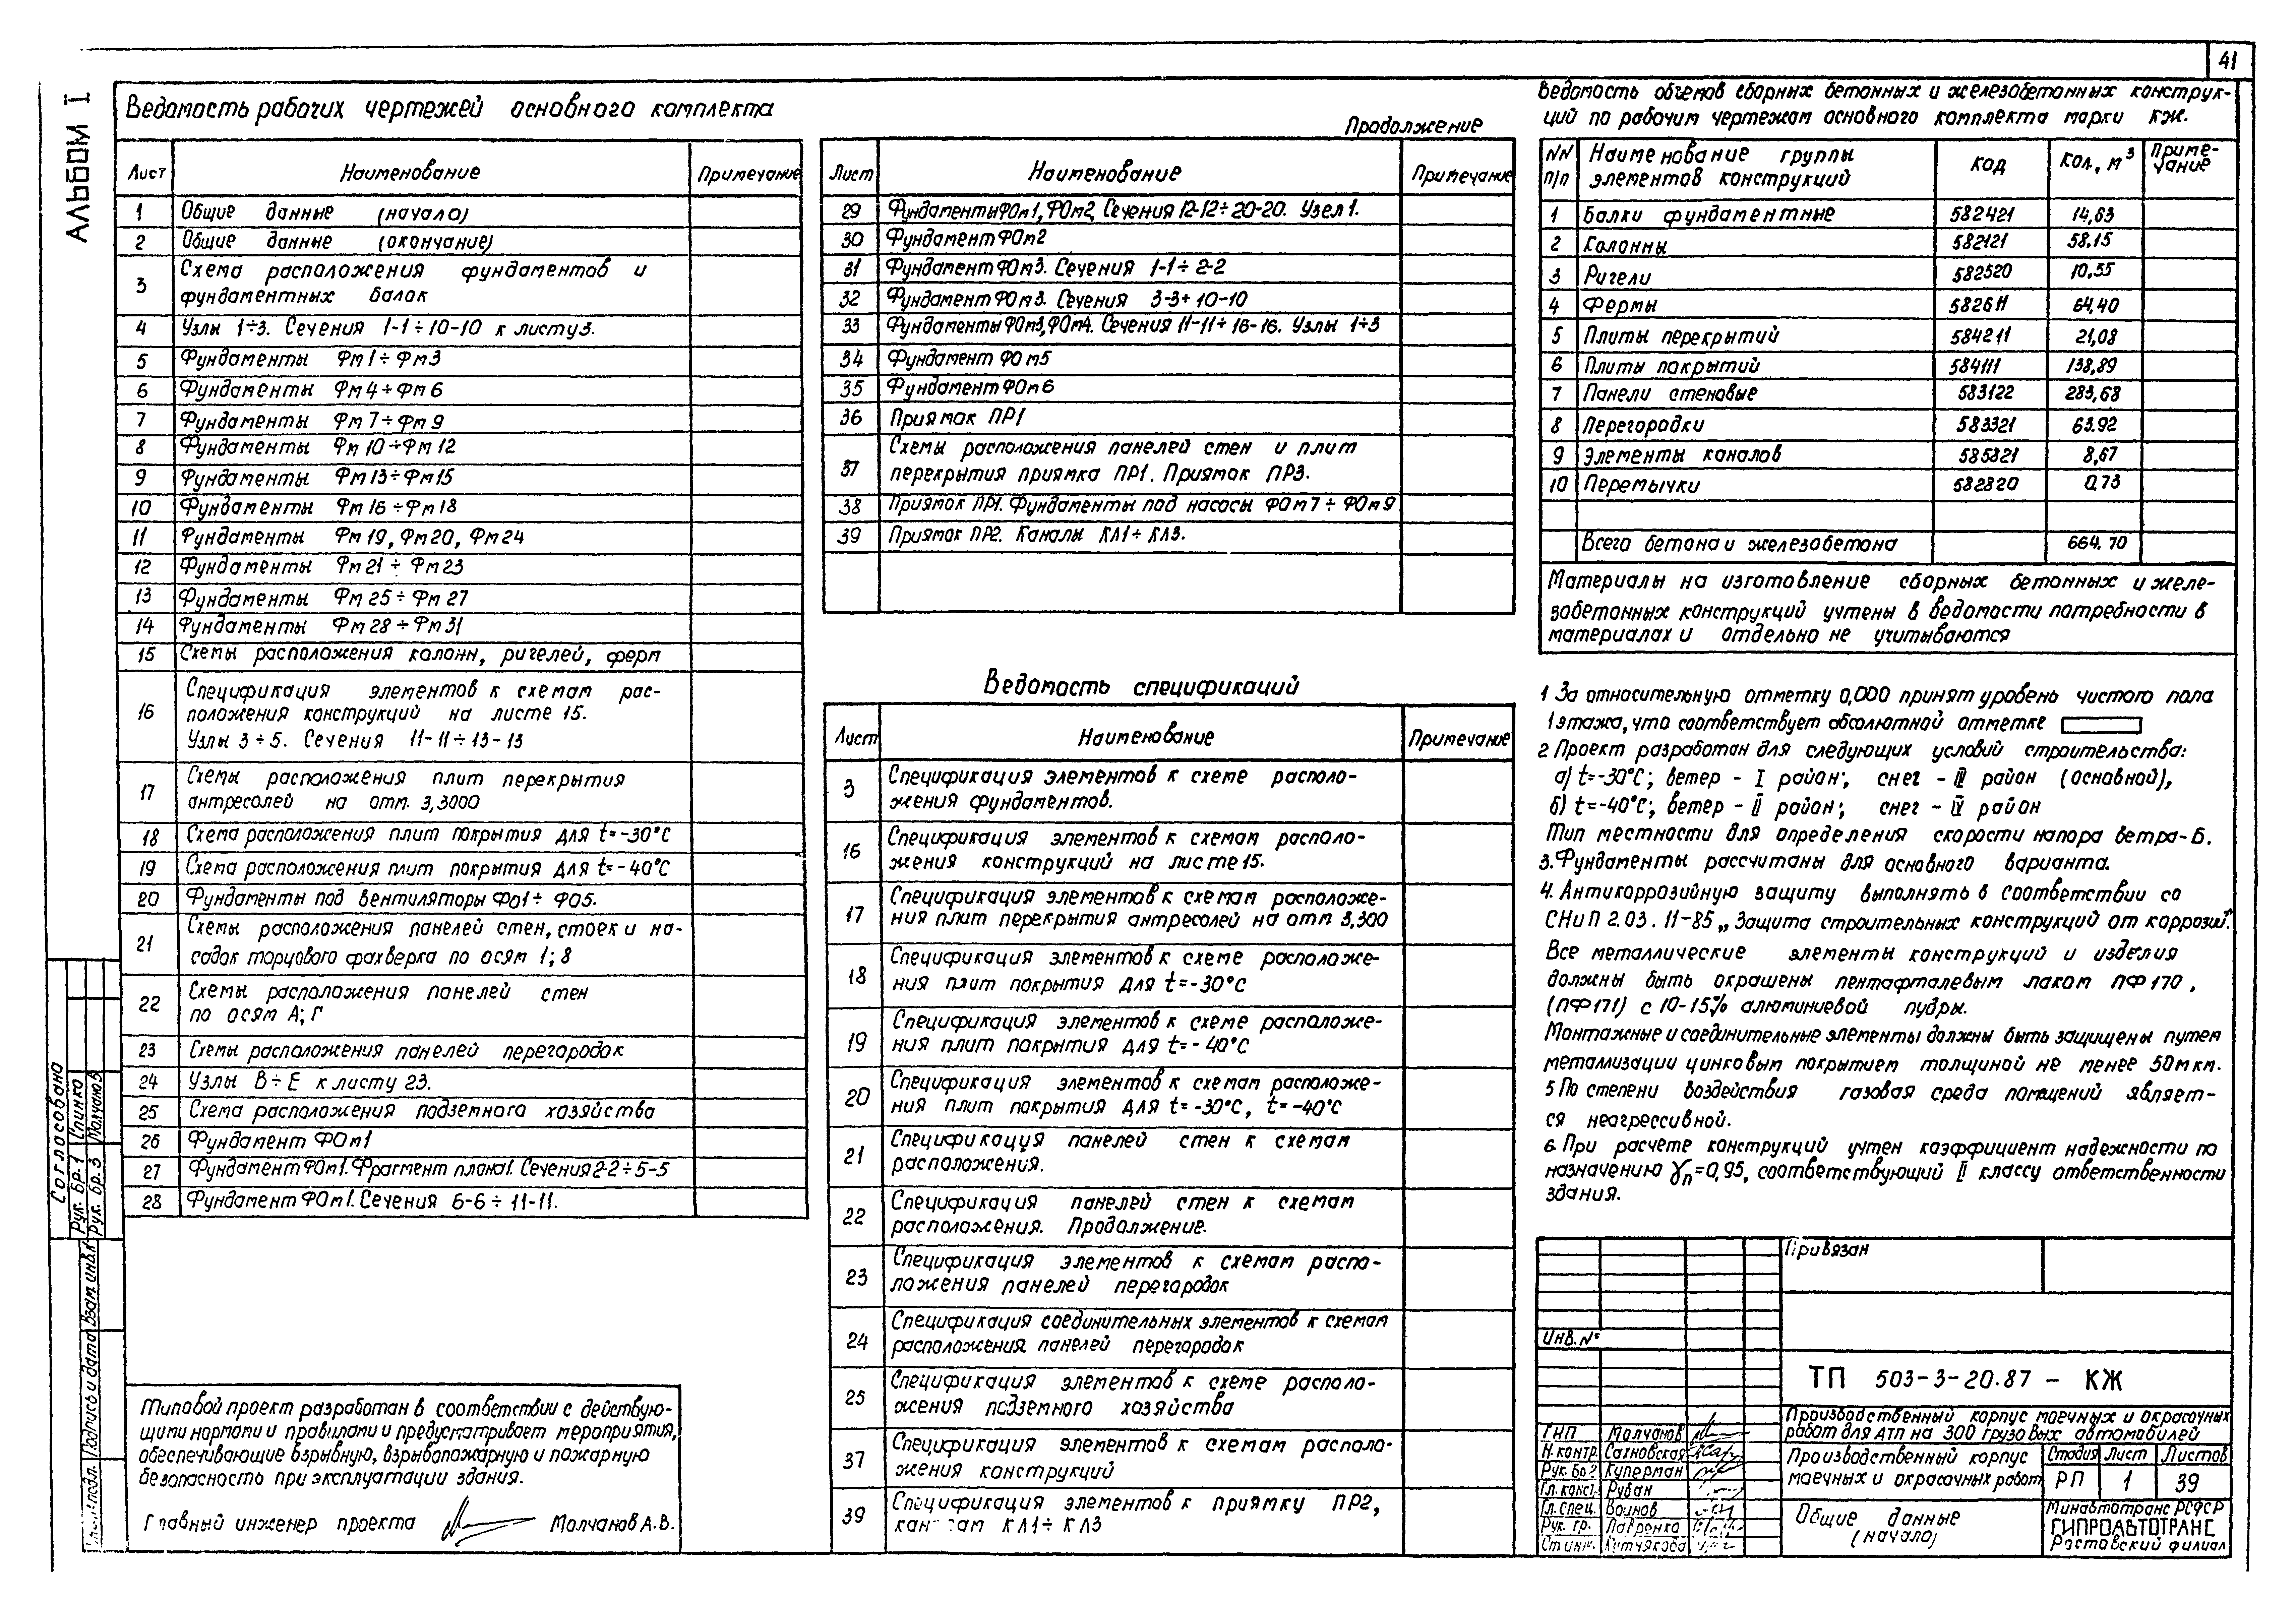 41
АЛЬБОМ I
Ведомость рабочих чертежей основного комплекта
Лист Наименование Примечание
1 Общие данные (начало)
2 Общие данные (окончание)
3 Схема расположения фундаментов и
фундаментных балок
4 Узлы 1÷3. Сечения 1-1÷10-10 к листу 3.
5 Фундаменты Фм1÷Фм3
6 Фундаменты Фм4÷Фм6
7 Фундаменты Фм7÷Фм9
8 Фундаменты Фм10÷Фм12
9 Фундаменты Фм13÷Фм15
10 Фундаменты Фм16÷Фм18
11 Фундаменты Фм19, Фм20, Фм24
12 Фундаменты Фм21÷Фм23
13 Фундаменты Фм25÷Фм27
14 Фундаменты Фм28÷Фм31
15 Схемы расположения колонн, ригелей, ферм
16 Спецификация элементов к схемам рас-
положения конструкций на листе 15.
Узлы 3÷5. Сечения 11-11÷13-13
17 Схемы расположения плит перекрытия
антресолей на отм. 3,3000
18 Схема расположения плит покрытия для t=-30°С
19 Схема расположения плит покрытия для t=-40°С
20 Фундаменты под вентиляторы Фо1÷Фо5.
21 Схемы расположения панелей стен, стоек и на-
садок торцового фахверка по осям 1; 8
22 Схемы расположения панелей стен
по осям А; Г
23 Схемы расположения панелей перегородок
24 Узлы В÷Е к листу 23.
25 Схема расположения подземного хозяйства
26 Фундамент ФОм1
27 Фундамент ФОм1. Фрагмент плана 1. Сечения 2-2÷5-5
28 Фундамент ФОм1. Сечения 6-6÷11-11.
Типовой проект разработан в соответствии с действую-
щими нормами и правилами и предусматривает мероприятия,
обеспечивающие взрывную, взрывопожарную и пожарную
безопасность при эксплуатации здания.
Главный инженер проекта Молчанов А.В.
Продолжение
Лист Наименование Примечание
29 Фундаменты ФОм1, ФОм2, Сечения 12-12÷20-20. Узел 1.
30 Фундамент ФОм2
31 Фундамент ФОм3. Сечения 1-1÷2-2
32 Фундамент ФОм3. Сечения 3-3÷10-10
33 Фундаменты ФОм3, ФОм4. Сечения 11-11÷16-16. Узлы 1÷3
34 Фундамент ФОм5
35 Фундамент ФОм6
36 Приямок ПР1
37 Схемы расположения панелей стен и плит
перекрытия приямка ПР1. Приямок ПР3.
38 Приямок ПР1. Фундаменты под насосы ФОм7÷ФОм9
39 Приямок ПР2. Каналы КЛ1÷КЛ3.
Ведомость спецификаций
Лист Наименование Примечание
3 Спецификация элементов к схеме располо-
жения фундаментов.
16 Спецификация элементов к схемам располо-
жения конструкций на листе 15.
17 Спецификация элементов к схемам расположе-
ния плит перекрытия антресолей на отм 3,300
18 Спецификация элементов к схеме расположе-
ния плит покрытия для t=-30°С
19 Спецификация элементов к схеме расположе-
ния плит покрытия для t=-40°С
20 Спецификация элементов к схемам расположе-
ния плит покрытия для t=-30°С, t=-40°С
21 Спецификация панелей стен к схемам
расположения.
22 Спецификация панелей стен к схемам
расположения. Продолжение.
23 Спецификация элементов к схемам распо-
ложения панелей перегородок
24 Спецификация соединительных элементов к схемам
расположения панелей перегородок
25 Спецификация элементов к схеме располо-
жения подземного хозяйства
37 Спецификация элементов к схемам располо-
жения конструкций
39 Спецификация элементов к приямку ПР2,
КЛ1÷КЛ3
Ведомость объемов сборных бетонных и железобетонных конструк-
ций по рабочим чертежам основного комплекта марки КЖ.
NN п/п Наименование группы элементов конструкций код кол., м³ Приме-чание
1 Балки фундаментные 582421 14,63
2 Колонны 582121 58,15
3 Ригели 582520 10,55
4 Фермы 582611 64,40
5 Плиты перекрытий 584211 21,08
6 Плиты покрытий 584111 138,89
7 Панели стеновые 583122 283,68
8 Перегородки 583321 63.92
9 Элементы каналов 585821 8,67
10 Перемычки 582820 0.73
Всего бетона и железобетона 664.70
Материалы на изготовление сборных бетонных и желе-
зобетонных конструкций учтены в ведомости потребности в
материалах и отдельно не учитываются
1 За относительную отметку 0,000 принят уровень чистого пола
1 этажа, что соответствует абсолютной отметке
2 Проект разработан для следующих условий строительства:
а) t=-30°С; ветер - I район; снег - III район (основной),
б) t=-40°С; ветер - II район; снег - IV район
Тип местности для определения скорости напора ветра-Б.
3. Фундаменты рассчитаны для основного варианта.
4. Антикоррозийную защиту выполнять в соответствии со
СНиП 2.03.11-85 „Защита строительных конструкций от коррозии".
Все металлические элементы конструкций и изделия
должны быть окрашены пентафталевым лаком ПФ170,
(ПФ171) с 10-15% алюминиевой пудры.
Монтажные и соединительные элементы должны быть защищены путем
металлизации цинковым покрытием толщиной не менее 50мкм.
5 По степени воздействия газовая среда помещений являет-
ся неагрессивной.
6 При расчете конструкций учтен коэффициент надежности по
назначению γn=0,95, соответствующий II классу ответственности
здания.
Привязан
Инв.N°
ТП 503-3-20.87 - КЖ
Производственный корпус моечных и окрасочных
работ для АТП на 300 грузовых автомобилей
ГИП Молчанов
Н.контр. Сахновская
Рук. бр2 Куперман
Гл. конст. Рубан
Гл. спец. Воинов
Рук. гр. Лавренко
Ст.инж.
Производственный корпус
моечных и окрасочных работ
Стадия Лист Листов
РП 1 39
Общие данные
(начало)
Минавтотранс РСФСР
ГИПРОАВТОТРАНС
Ростовский филиал
Согласовано
Рук. бр. 1 Спинко
Рук. бр. 3
Взам.инв.N
Подпись и дата